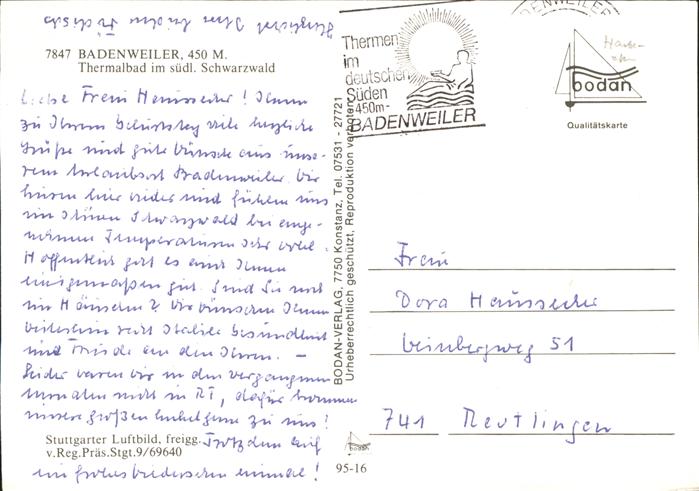 Herzlichst Ihre
7847 BADENWEILER, 450 M.
Thermalbad im südl. Schwarzwald
Liebe Frau Haussecker! Ihnen
zu Ihrem Geburtstag viele herzliche
Grüße und gute Wünsche aus unse-
rem Urlaubsort Badenweiler. Wir
hier wieder und fühlen uns
im Schwarzwald bei ange-
nehmen Temperaturen sehr wohl.
Hoffentlich geht es auch Ihnen
einigermaßen gut. Sind Sie noch
im Häuschen? Wir wünschen Ihnen
weiterhin recht stabile Gesundheit
und Freude an den Ihren. –
Leider waren wir in den vergangenen
Monaten nicht in RT, dafür kommen
unsere großen Enkel gerne zu uns!
Stuttgarter Luftbild, freigg.
v.Reg.Präs.Stgt.9/69640
Trotzdem auf
ein frohes Wiedersehen einmal!
Thermen
im
deutschen
Süden
-450m-
BADENWEILER
BADENWEILER
bodan
Qualitätskarte
BODAN-VERLAG, 7750 Konstanz, Tel. 07531 - 27721
Urheberrechtlich geschützt, Reproduktion verboten
Frau
Dora Haussecker
Weinbergweg 51
741 Reutlingen
bodan
95-16